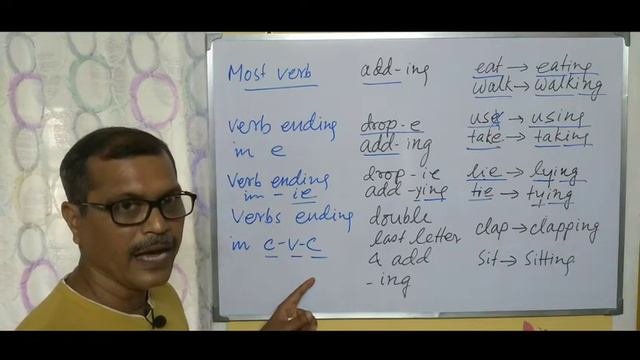 Most verb add-ing eat → eating
walk → walking
verb ending drop-e use → using
in e add-ing take → taking
Verb ending drop-ie lie → lying
in - ie add-ying tie → tying
Verbs ending double
in C-V-C last letter clap → clapping
& add sit → sitting
-ing